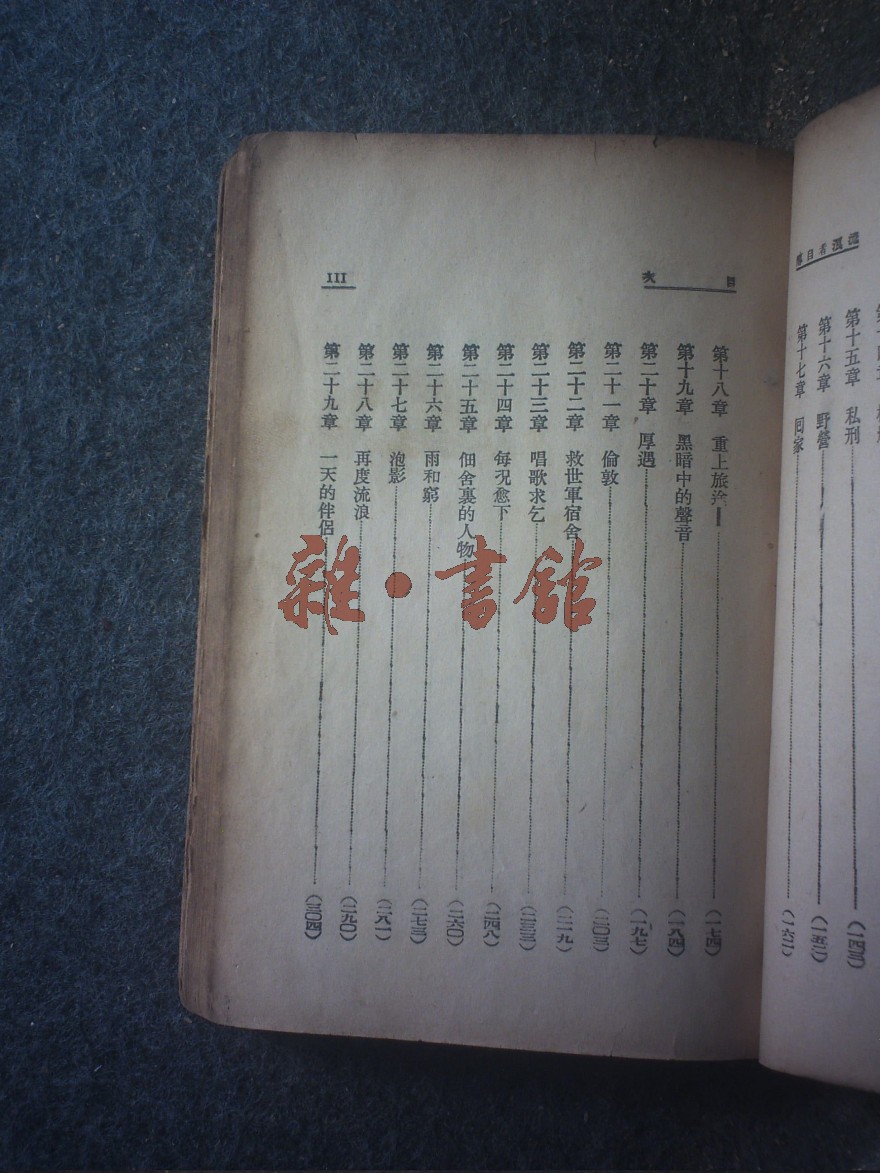 流浪者自傳
第十五章 私刑 (一四三)
第十六章 野營 (一五二)
第十七章 囘家 (一六二)
目次
III
第十八章 重上旅 (一七四)
第十九章 黑暗中的聲音 (一八四)
第二十章 厚遇 (一九七)
第二十一章 倫敦 (二〇三)
第二十二章 救世軍宿舍 (二一九)
第二十三章 唱歌求乞 (二三三)
第二十四章 每况愈下 (二四八)
第二十五章 佃舍裏的人物 (二六〇)
第二十六章 雨和窮 (二七三)
第二十七章 泡影 (二八一)
第二十八章 再度流浪 (二九〇)
第二十九章 一天的伴侶 (三〇四)
雜·書館